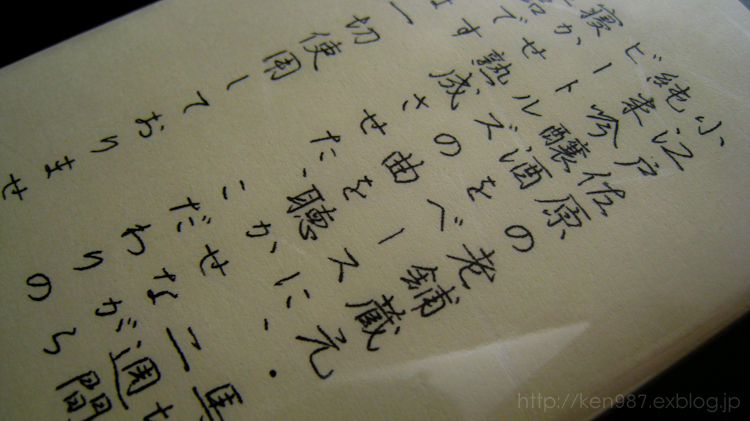 小江戸佐原の老舗蔵元・
純米吟醸酒をベースに、二週間
ビートルズの曲を聴かせながら
寝かせ熟成させた、こだわりの
です
一切使用しておりませ
http://ken987.exblog.jp